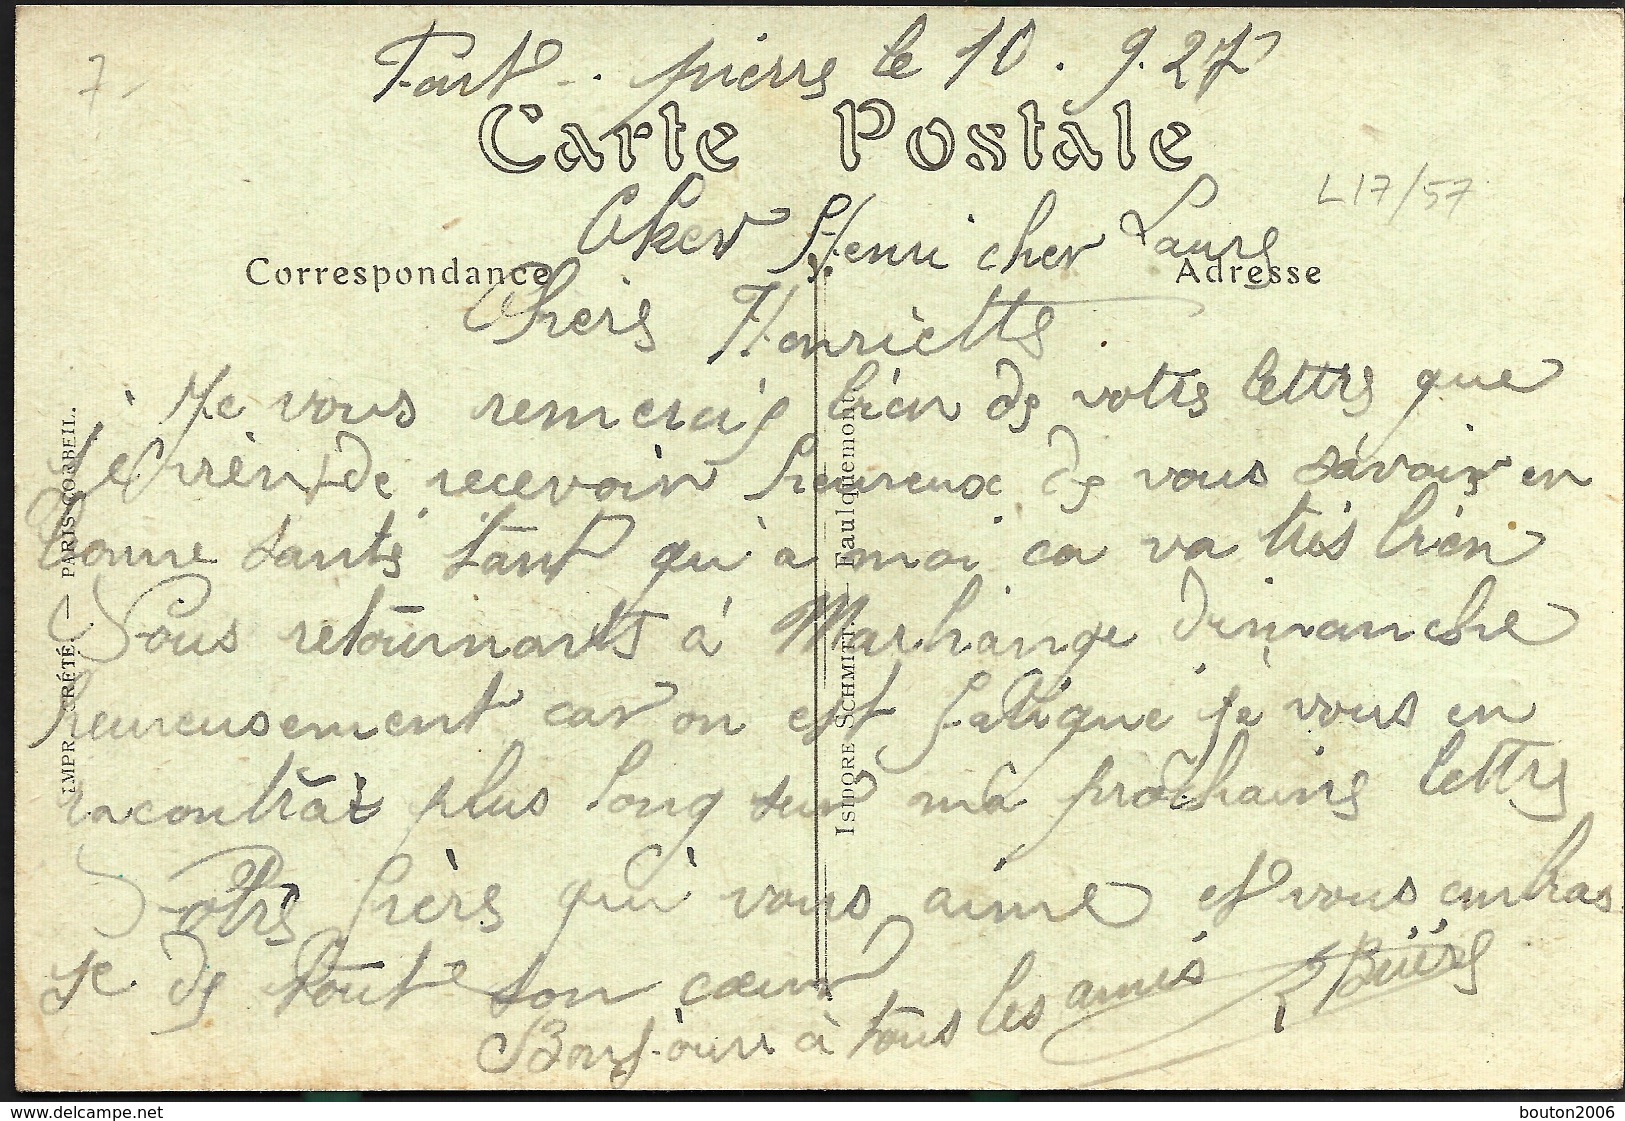 7-
Fort. pierre le 10. 9.27
Carte Postale
L17/57
Cher Henri cher Laure
Correspondance
Adresse
Chers Henriette
Je vous remercie bien de votre lettre que
je vien de recevoir heureux de vous savoir en
bonne santé tant qu'à moi ca va très bien
Nous retournants à Marhange dimanche
heureusement car on est fatigue je vous en
racontrai plus long sur ma prochaine lettre
Votre frère qui vous aime et vous embras
se de tout son cœur
Bonjour à tous les amis
IMPR. CRÉTÉ. — PARIS-CORBEIL.
ISIDORE SCHMITT — Faulquemont
www.delcampe.net
bouton2006